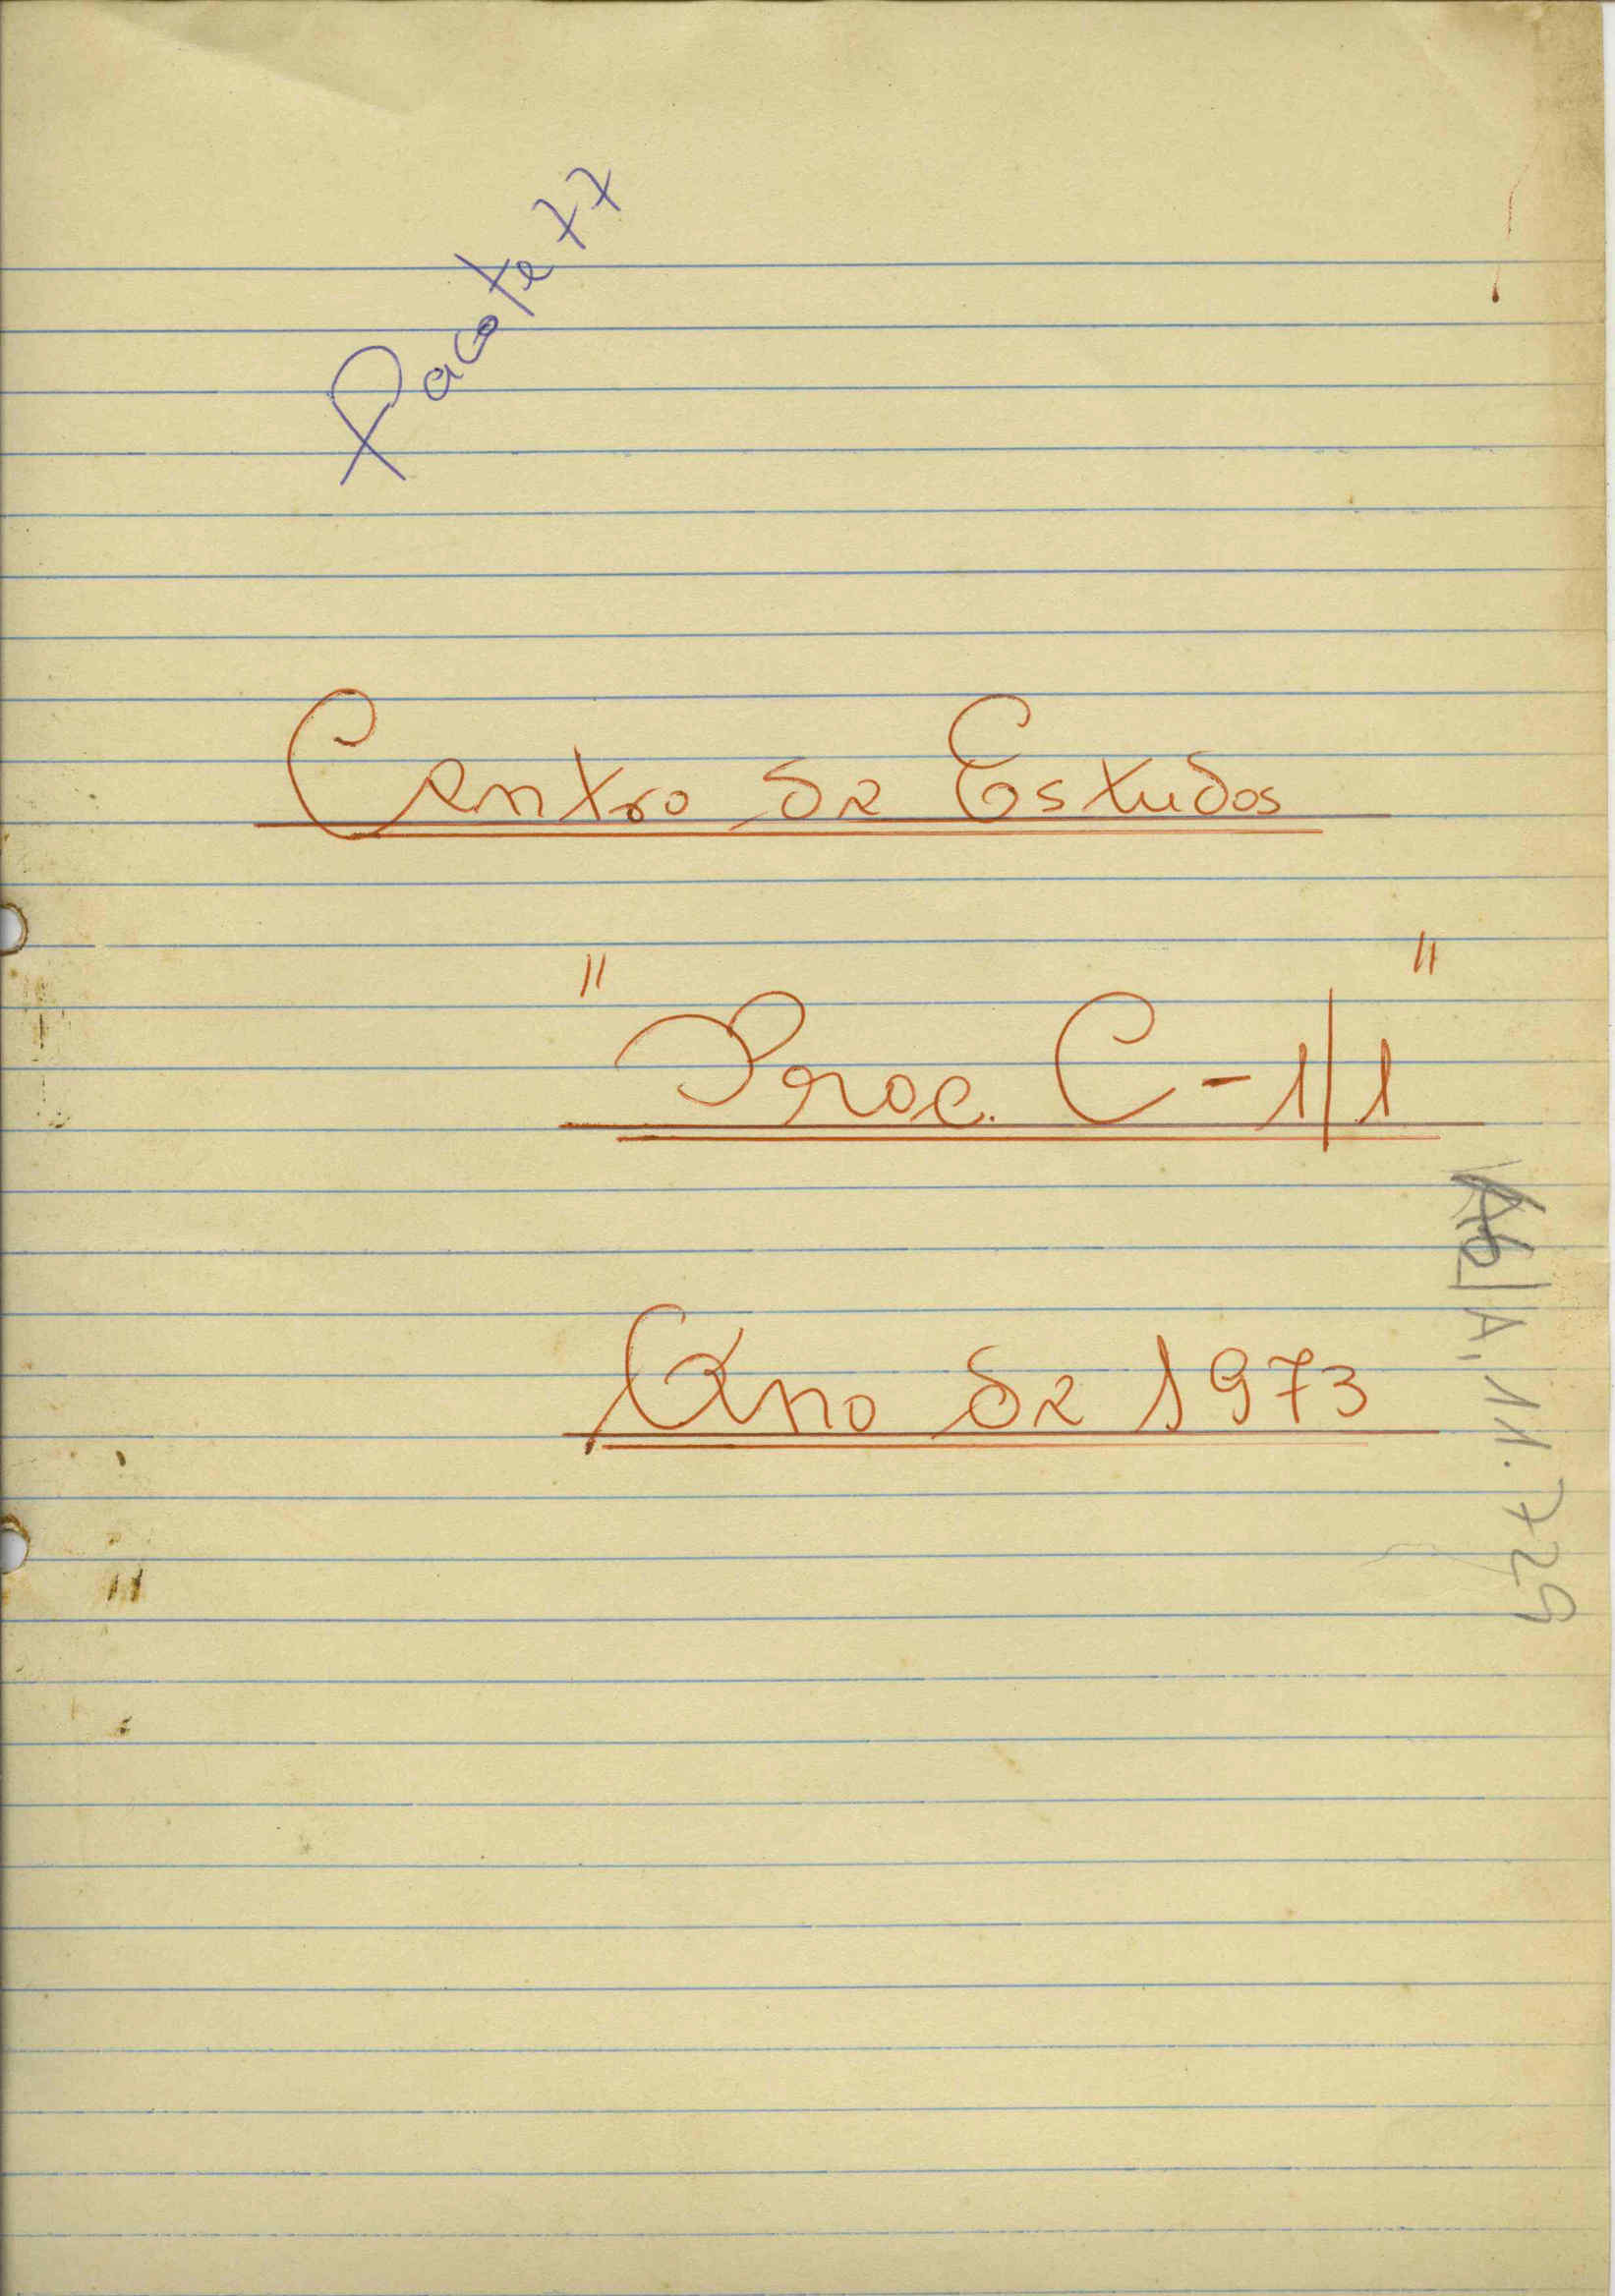 Pacote 77
Centro de Estudos
"Proc. C-1/1"
Ano de 1973
A. 11.729